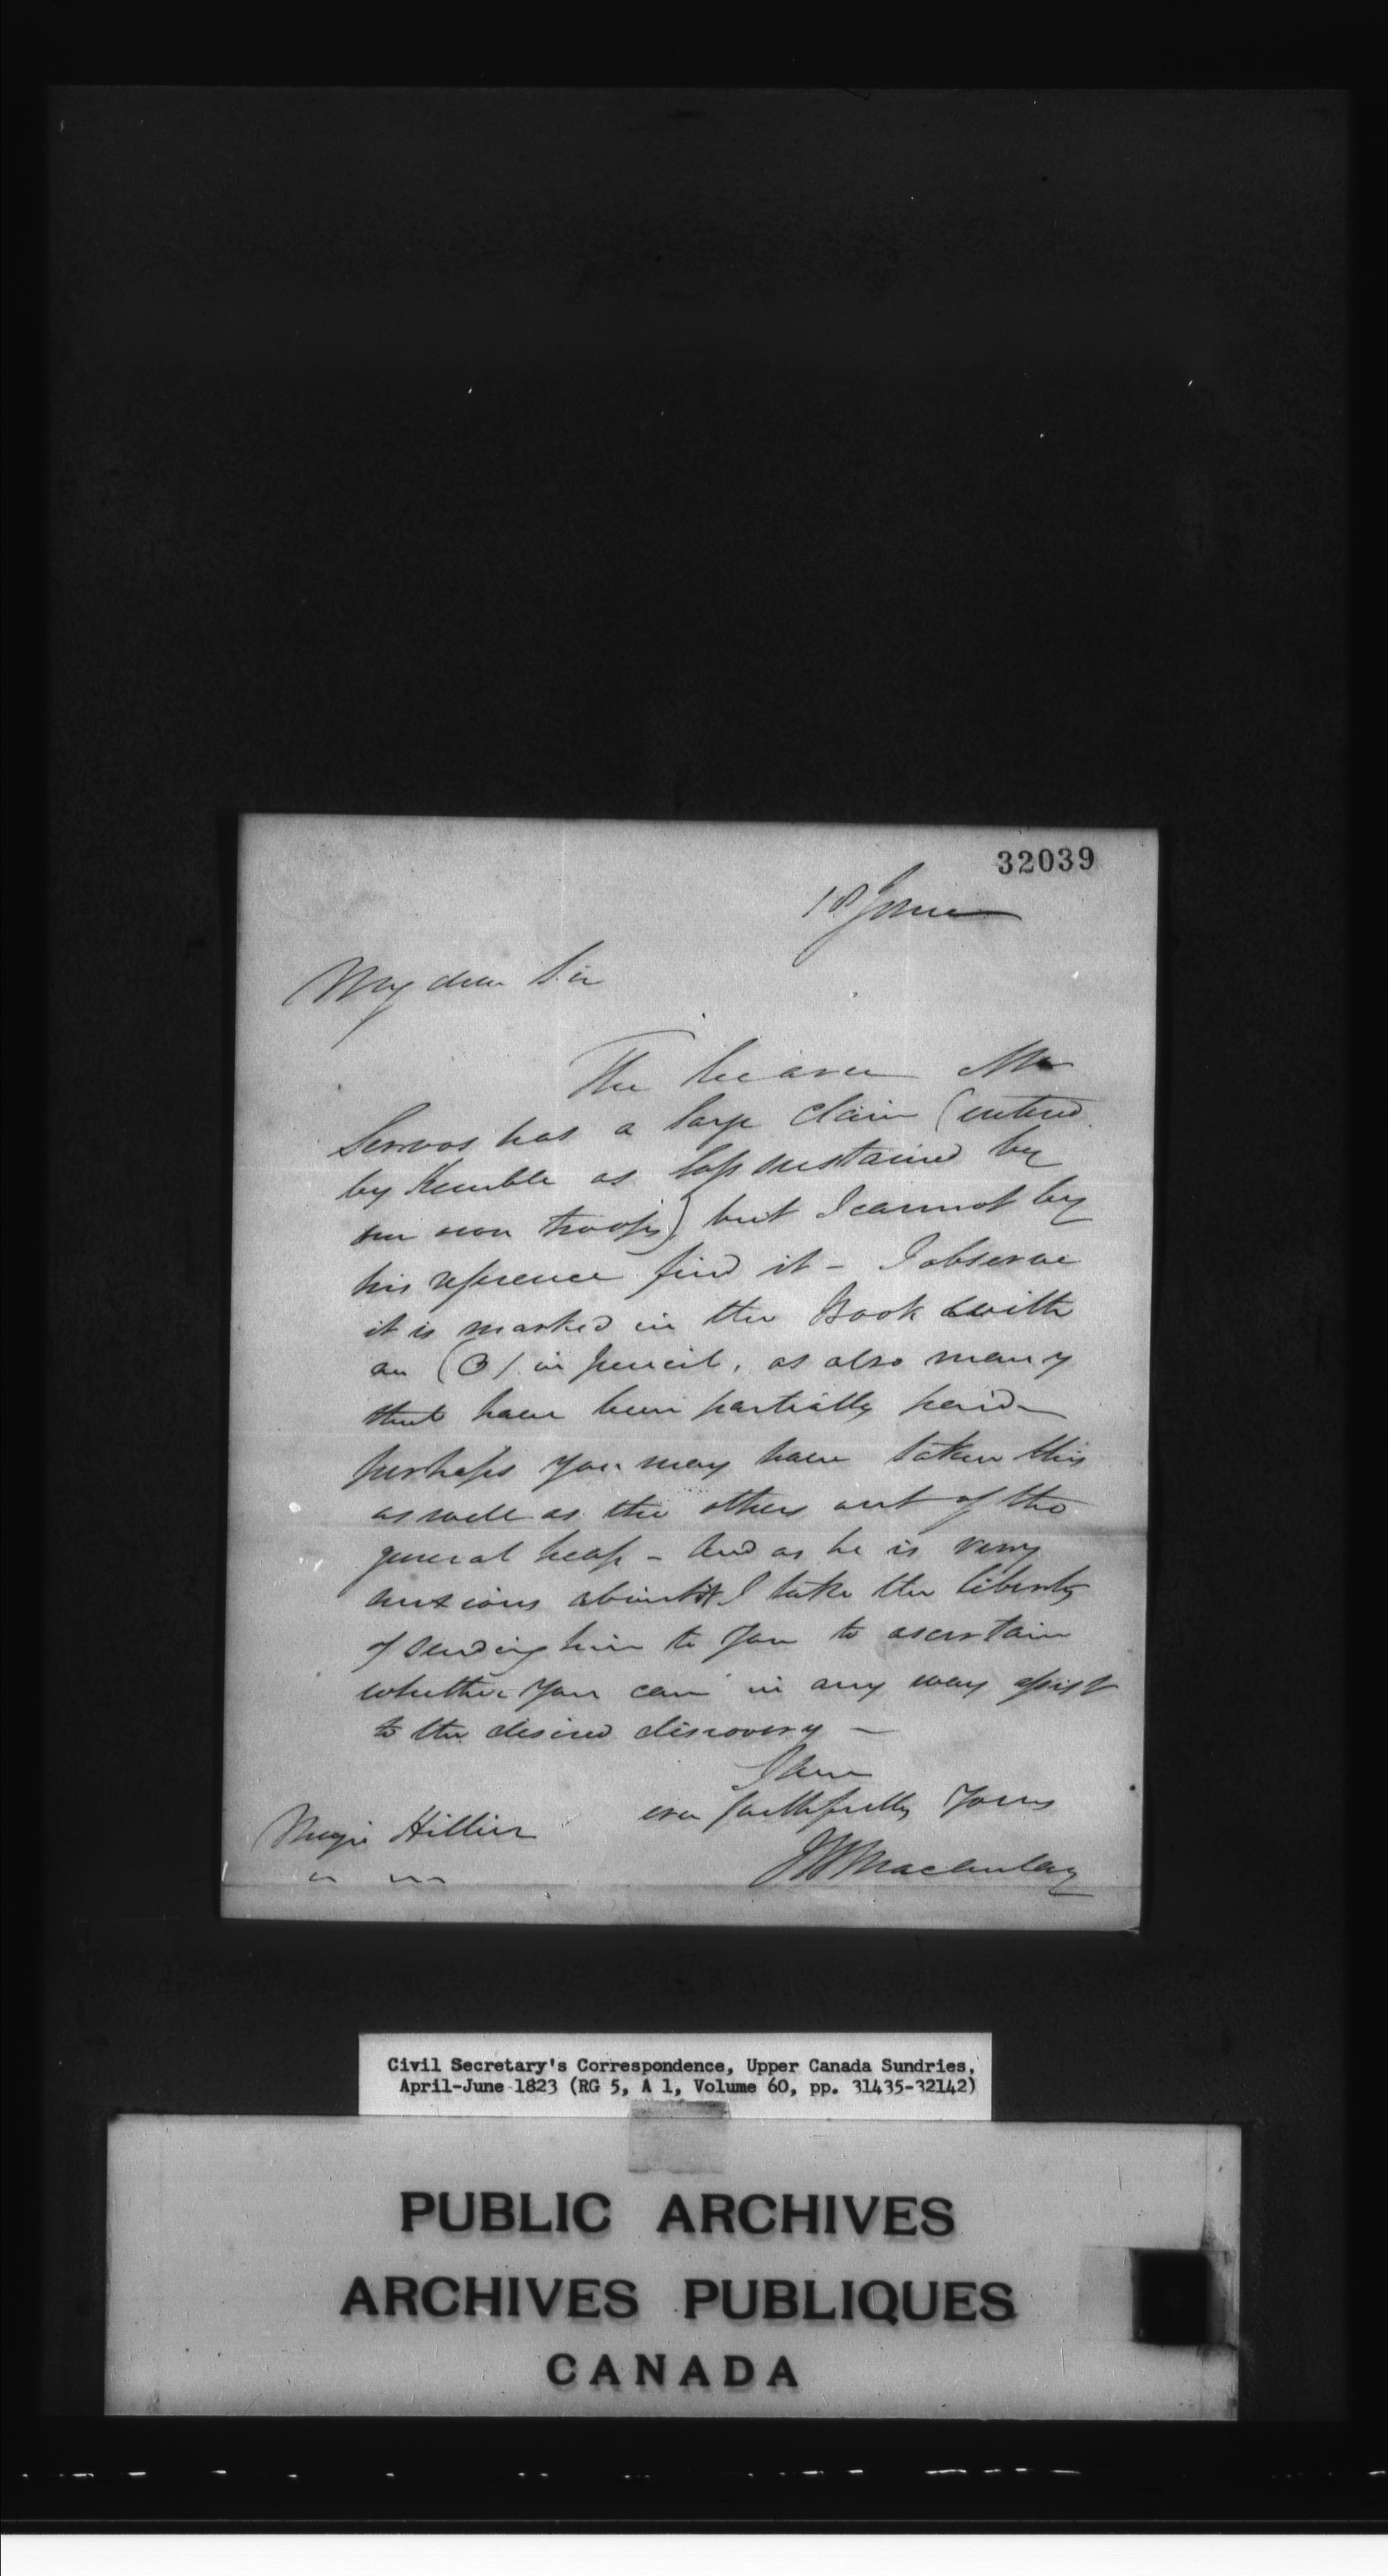 32039
18 June
My dear Sir
The bearer Mr
Servos has a large claim (entered
by Kemble as loss sustained by
our own troops) but I cannot by
his reference find it - I observe
it is marked in the Book with
an (O) in pencil, as also many
that have been partially paid -
perhaps you may have taken this
as well as the others out of the
general heap - And as he is very
anxious about it I take the liberty
of sending him to you to ascertain
whether you can in any way assist
to the desired discovery -
I am
ever faithfully Yours
Major Hillier
Macaulay
Civil Secretary's Correspondence, Upper Canada Sundries,
April-June 1823 (RG 5, A 1, Volume 60, pp. 31435-32142)
PUBLIC ARCHIVES
ARCHIVES PUBLIQUES
CANADA